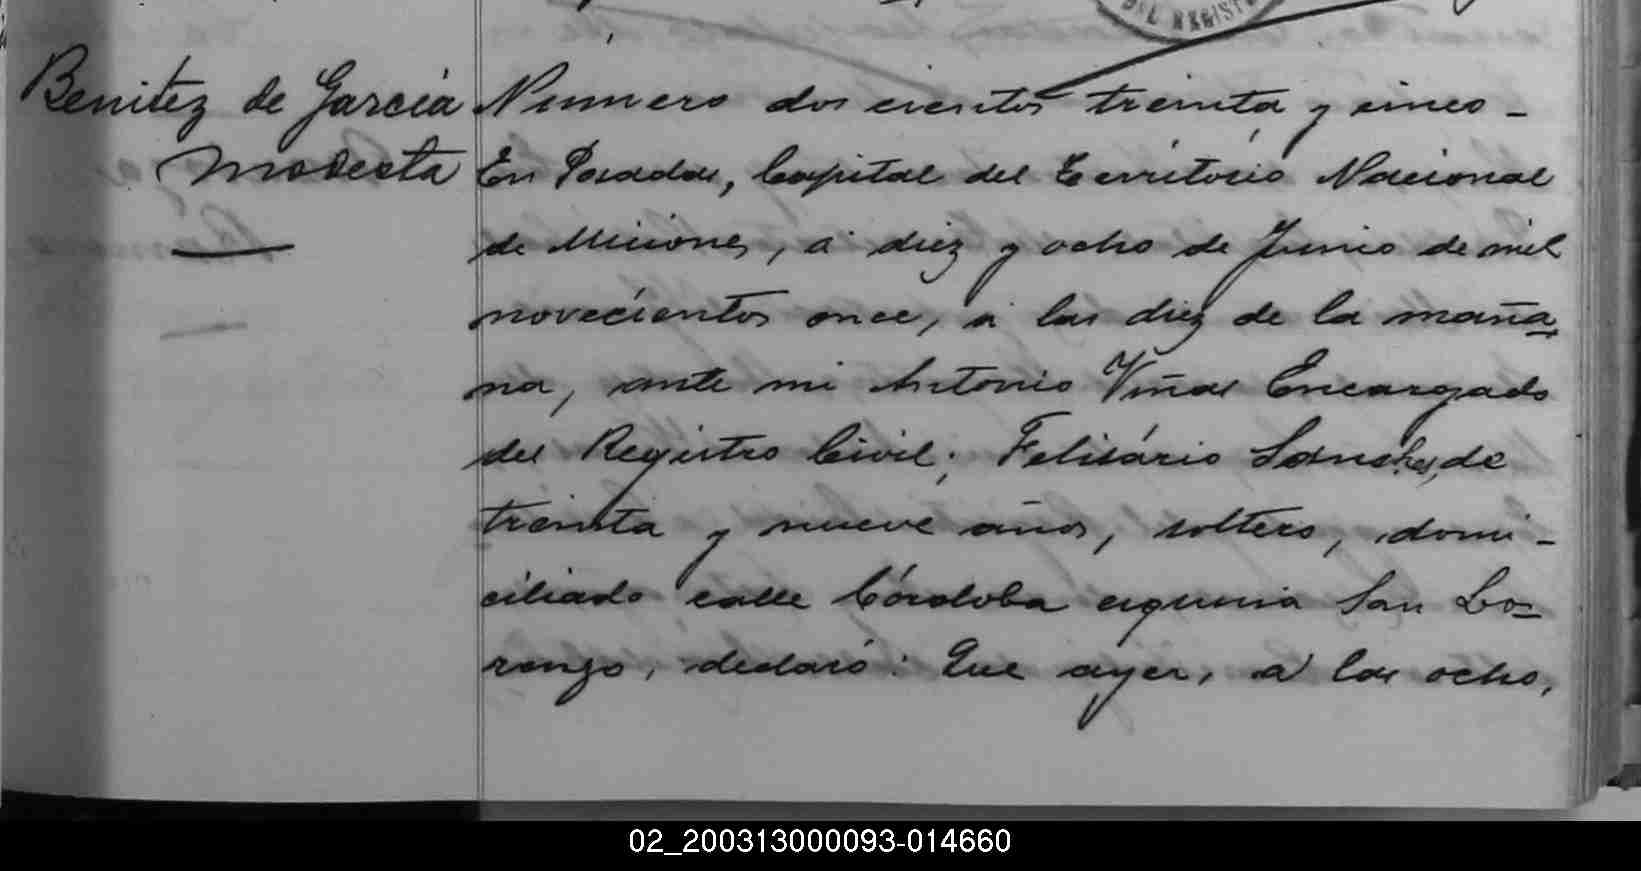 DEL REGISTRO
Benitez de García
Modesta
Número dos cientos treinta y cinco -
En Posadas, Capital del Territorio Nacional
de Misiones, á diez y ocho de Junio de mil
novecientos once, á las diez de la maña
na, ante mi Antonio Viñas Encargado
del Registro Civil; Felisário Sanches, de
treinta y nueve años, soltero, domi-
ciliado calle Córdoba esquina San Lo-
renzo, declaró: Que ayer, á las ocho,
02_200313000093-014660